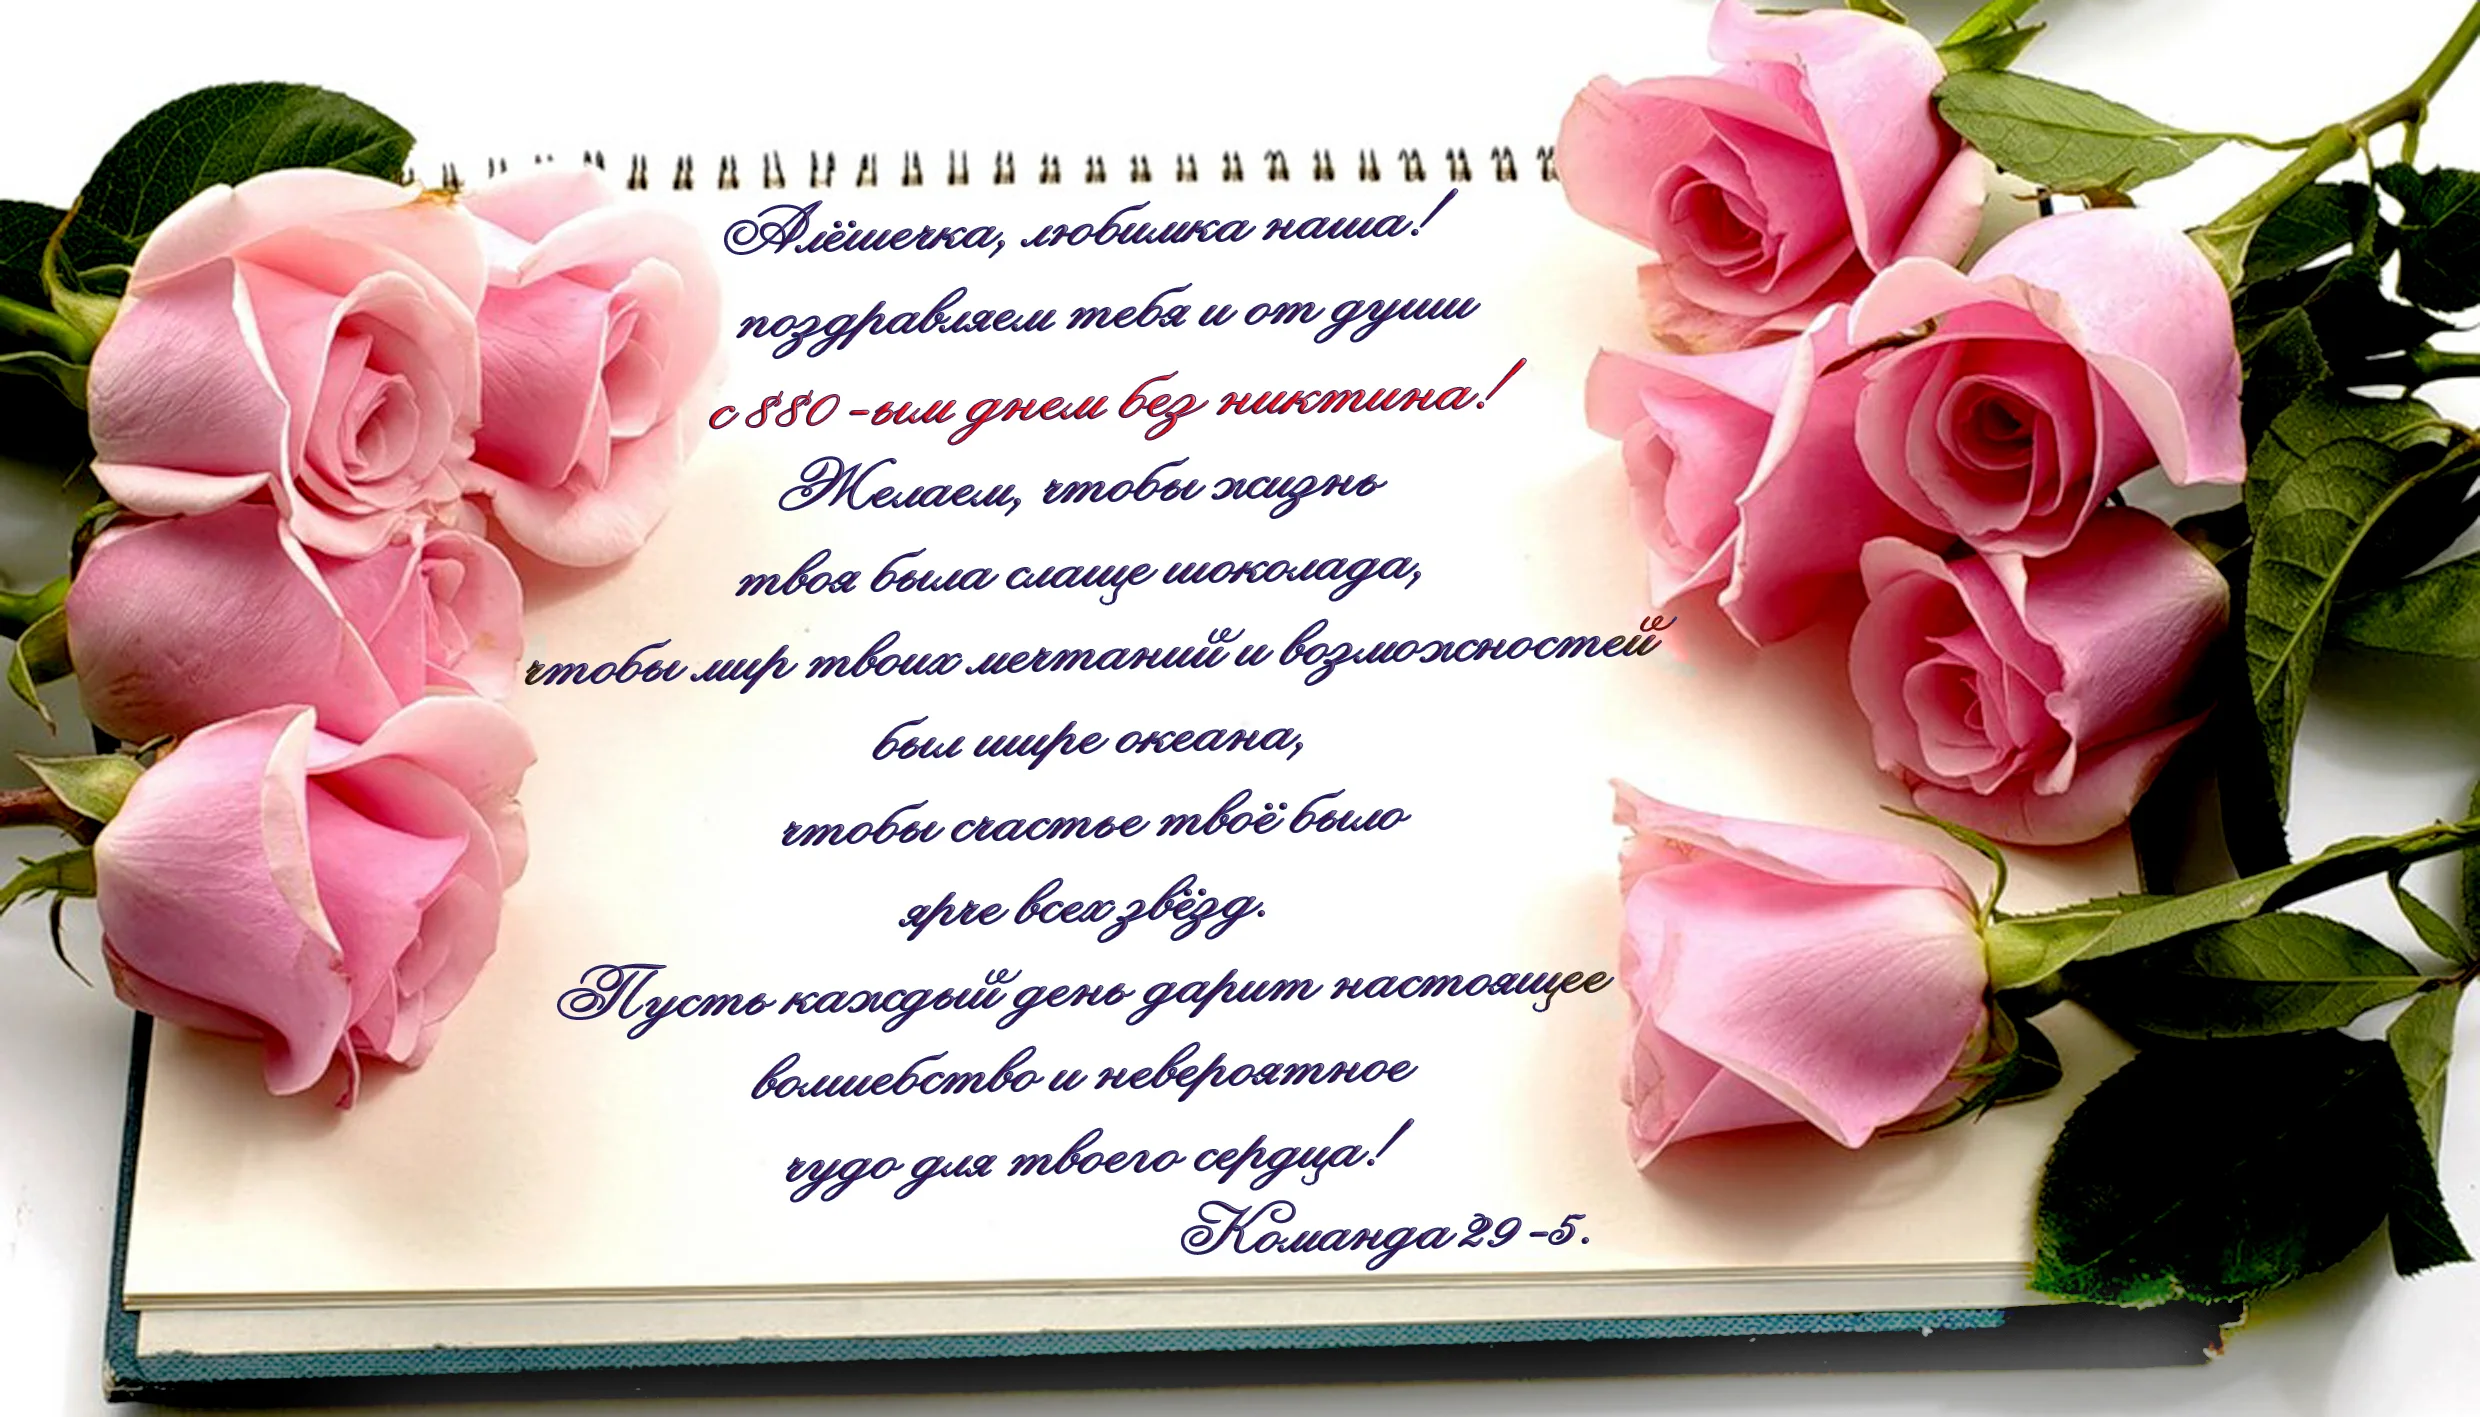 Алёшечка, любимка наша!
поздравляем тебя и от души
с 880 -ым днем без никтина!
Желаем, чтобы жизнь
твоя была слаще шоколада,
чтобы мир твоих мечтаний и возможностей
был шире океана,
чтобы счастье твоё было
ярче всех звёзд.
Пусть каждый день дарит настоящее
волшебство и невероятное
чудо для твоего сердца!
Команда 29 -5.